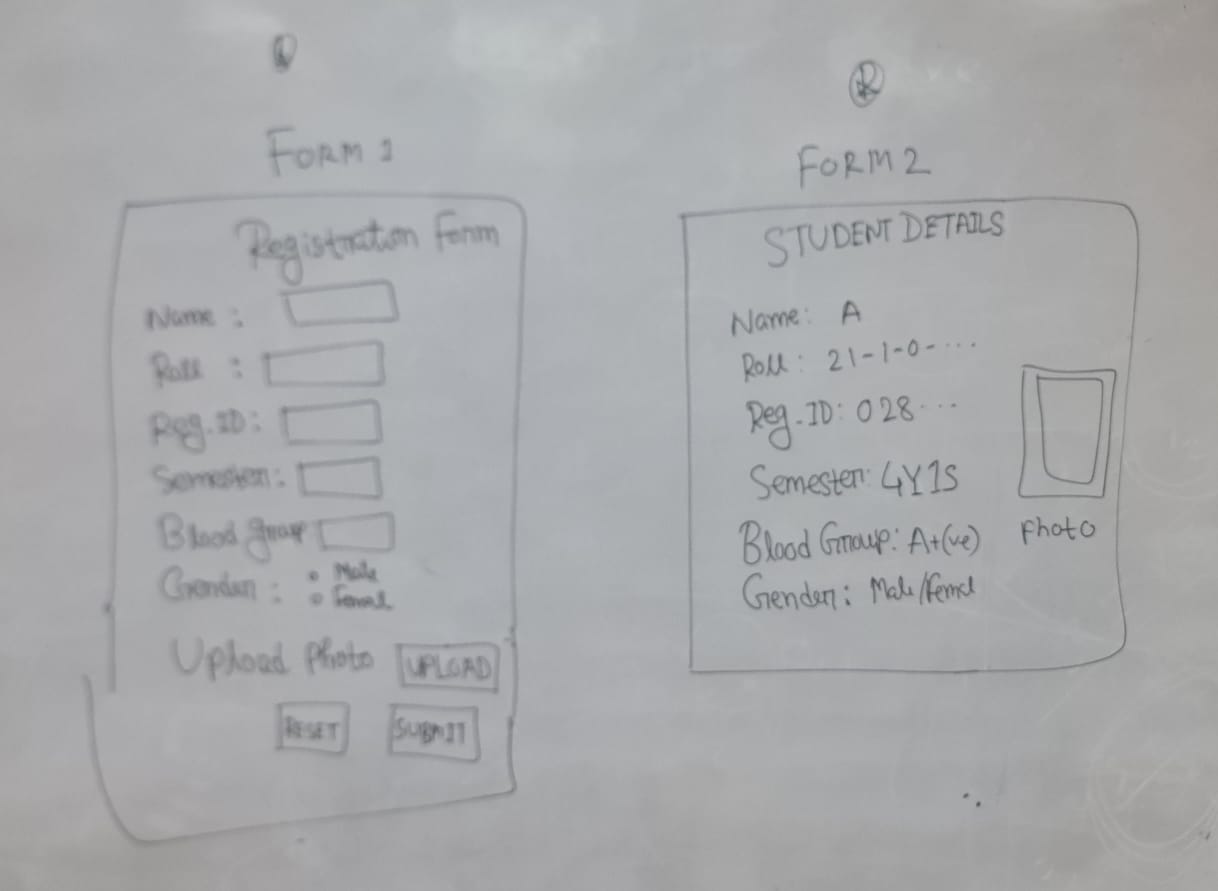 FORM 1
Registration Form
Name :
Roll :
Reg. ID :
Semester :
Blood group
Gender : Male
Female
Upload Photo UPLOAD
RESET SUBMIT
R
FORM 2
STUDENT DETAILS
Name: A
Roll: 21-1-0-...
Reg. ID: 028...
Semester: 4Y1S
Blood Group: A+(ve)
Gender: Male/Femal
Photo